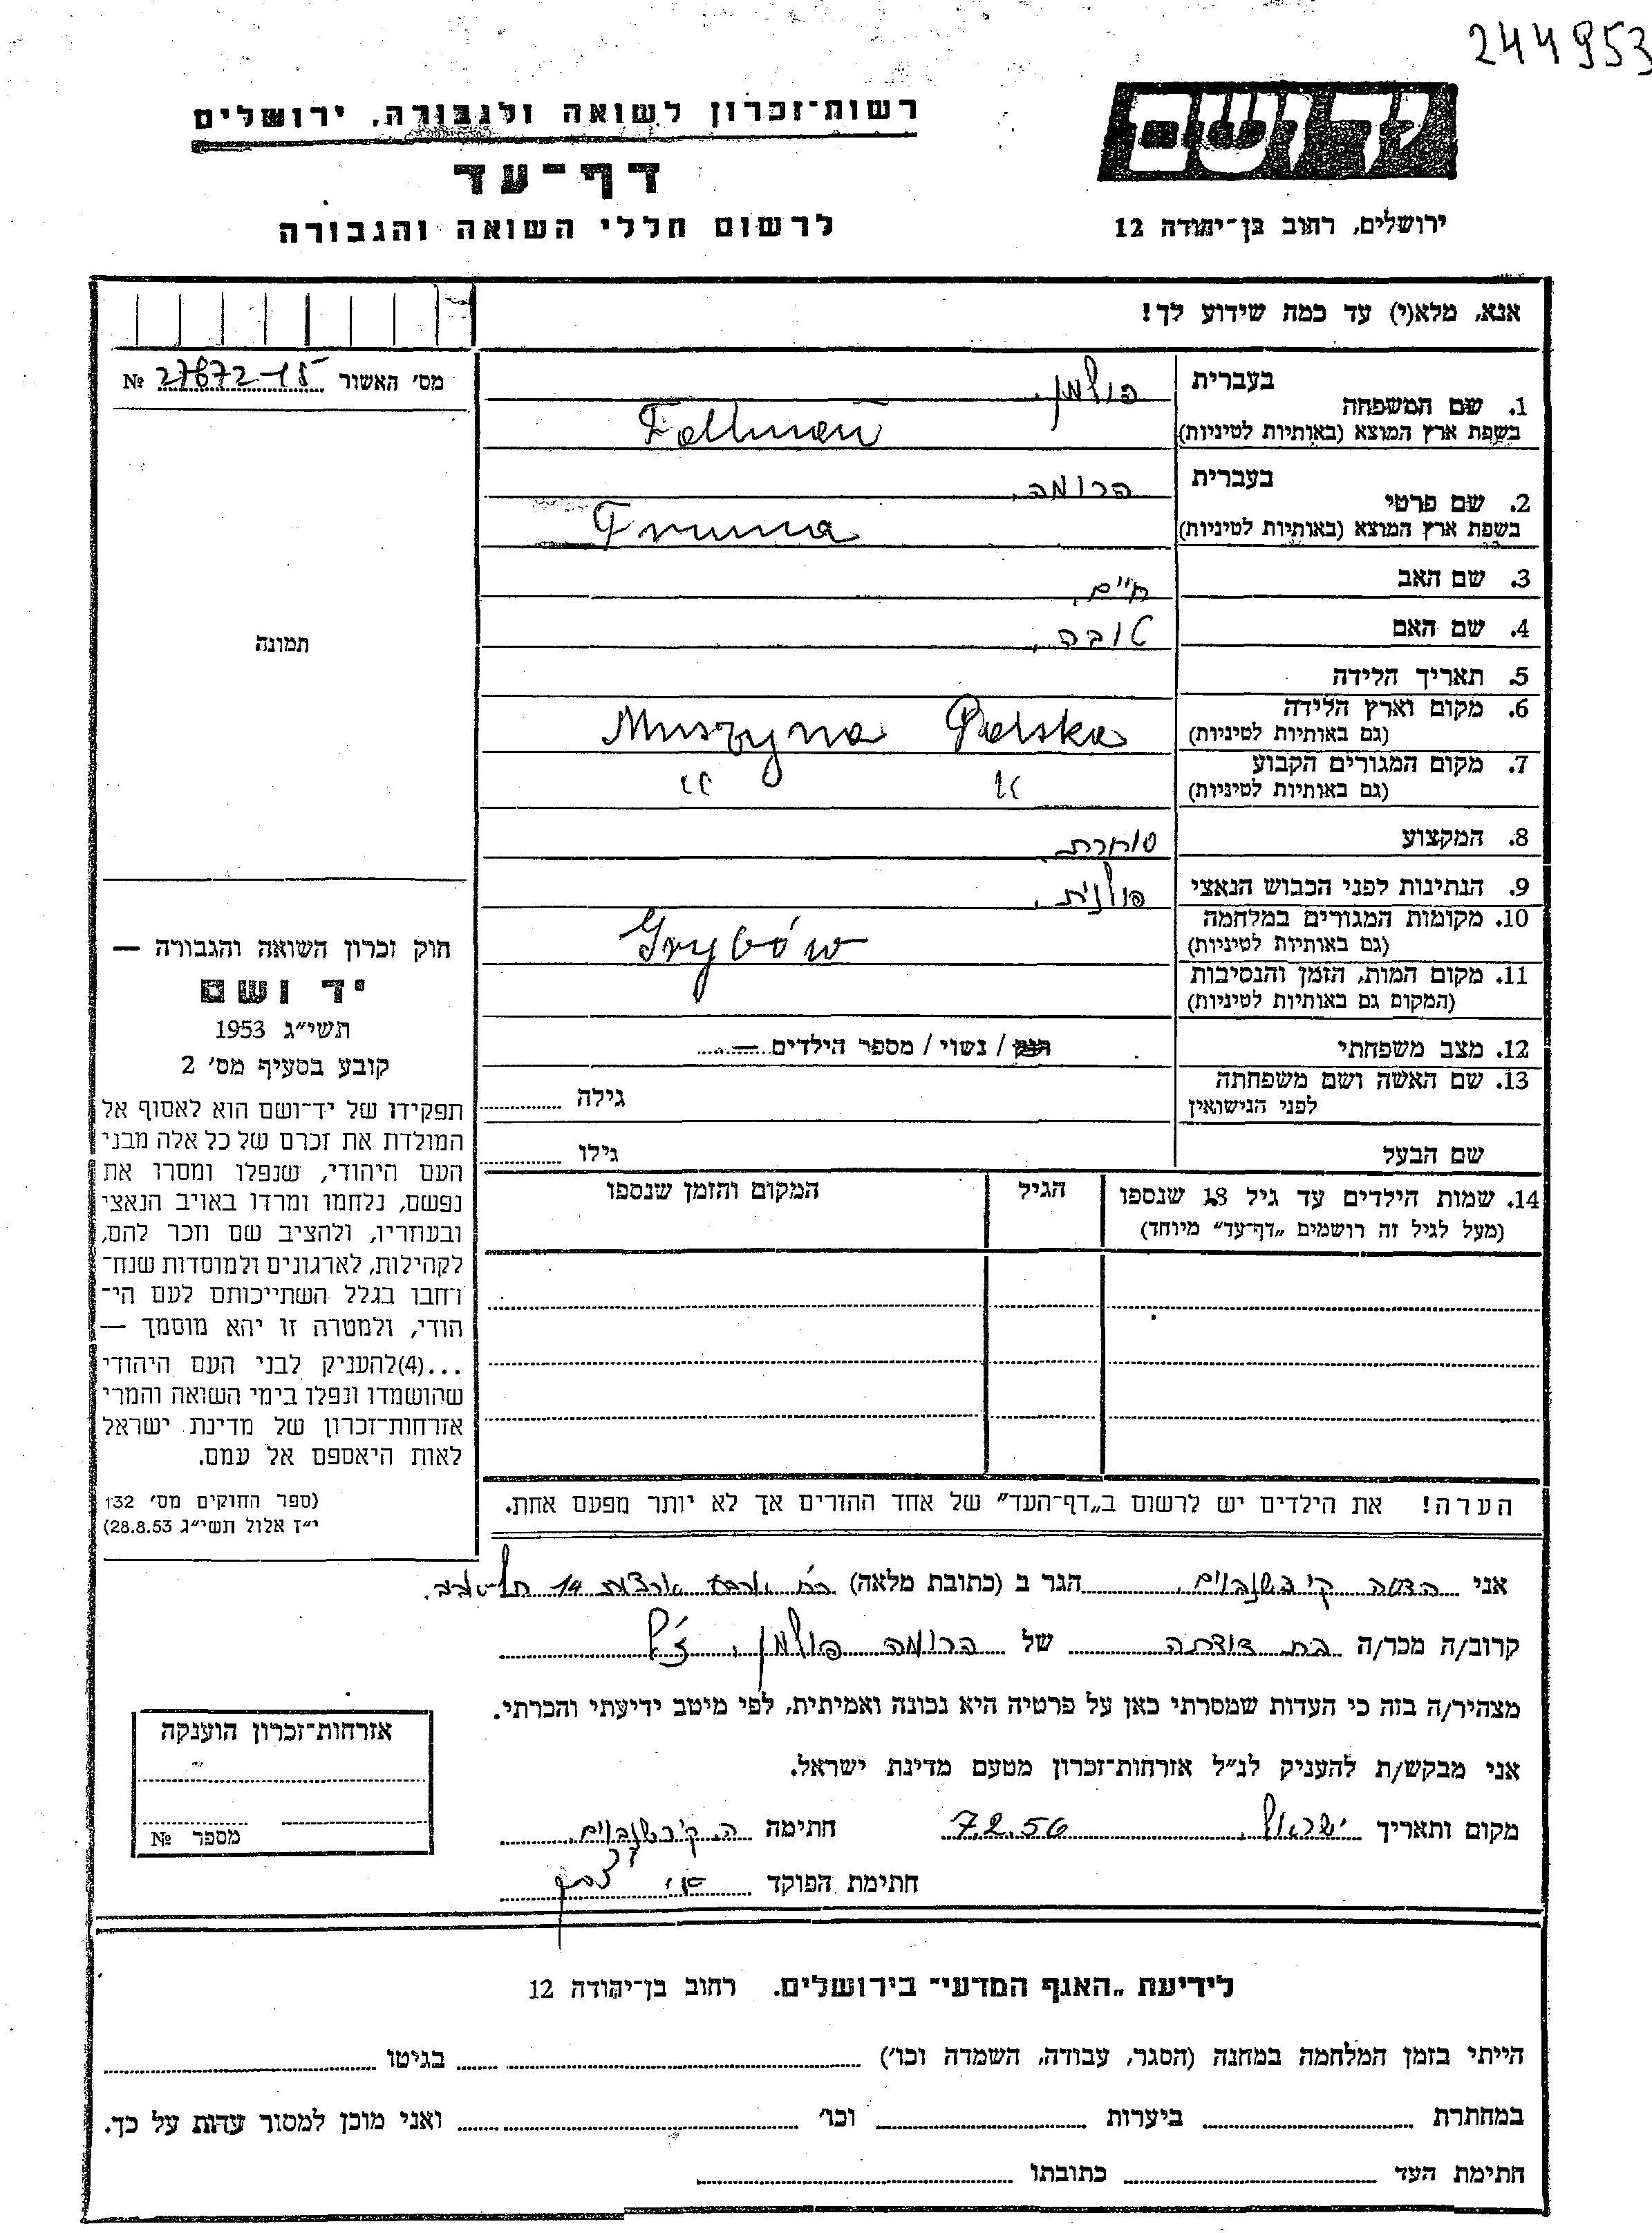 244953
יד ושם
רשות־זכרון לשואה ולגבורה, ירושלים
דף־עד
לרשום חללי השואה והגבורה
ירושלים, רחוב בן־יהודה 12
אנא, מלא(י) עד כמה שידוע לך!
מס׳ האשור № 27672-15
תמונה
1. שם המשפחה
בעברית פולמן.
בשפת ארץ המוצא (באותיות לטיניות) Follman
2. שם פרטי
בעברית פרומה.
בשפת ארץ המוצא (באותיות לטיניות) Fruma
3. שם האב חיים.
4. שם האם טובה.
5. תאריך הלידה
6. מקום וארץ הלידה
(גם באותיות לטיניות) Muszyna Polska
7. מקום המגורים הקבוע
(גם באותיות לטיניות) " "
8. המקצוע סוחרת.
9. הנתינות לפני הכבוש הנאצי פולנית.
10. מקומות המגורים במלחמה
(גם באותיות לטיניות) Grybów
11. מקום המות, הזמן והנסיבות
(המקום גם באותיות לטיניות)
12. מצב משפחתי רוק / נשוי / מספר הילדים —
13. שם האשה ושם משפחתה
לפני הנישואין גילה
שם הבעל גילו
14. שמות הילדים עד גיל 18 שנספו הגיל המקום והזמן שנספו
(מעל לגיל זה רושמים „דף־עד״ מיוחד)
הערה! את הילדים יש לרשום ב„דף־העד״ של אחד ההורים אך לא יותר מפעם אחת.
חוק זכרון השואה והגבורה —
יד ושם
תשי״ג 1953
קובע בסעיף מס׳ 2
תפקידו של יד־ושם הוא לאסוף אל
המולדת את זכרם של כל אלה מבני
העם היהודי, שנפלו ומסרו את
נפשם, נלחמו ומרדו באויב הנאצי
ובעוזריו, ולהציב שם וזכר להם,
לקהילות, לארגונים ולמוסדות שנח־
רחבו בגלל השתייכותם לעם הי־
הודי, ולמטרה זו יהא מוסמך —
...(4)להעניק לבני העם היהודי
שהושמדו ונפלו בימי השואה והמרי
אזרחות־זכרון של מדינת ישראל
לאות היאספם אל עמם.
(ספר החוקים מס׳ 132
י״ז אלול תשי״ג 28.8.53)
אני הדסה קירשנבוים. הגר ב (כתובת מלאה) רח׳ ארבע ארצות 14 תל־אביב.
קרוב/ה מכר/ה בת דודתה של פרומה פולמן. ז״ל
מצהיר/ה בזה כי העדות שמסרתי כאן על פרטיה היא נכונה ואמיתית, לפי מיטב ידיעתי והכרתי.
אני מבקש/ת להעניק לנ״ל אזרחות־זכרון מטעם מדינת ישראל.
מקום ותאריך ישראל. 7.2.56 חתימה ה. קירשנבוים.
חתימת הפוקד
אזרחות־זכרון הוענקה
מספר №
לידיעת „האגף המדעי״ בירושלים. רחוב בן־יהודה 12
הייתי בזמן המלחמה במחנה (הסגר, עבודה, השמדה וכו׳) בגיטו
במחתרת ביערות וכו׳ ואני מוכן למסור עדות על כך.
חתימת העד כתובתו